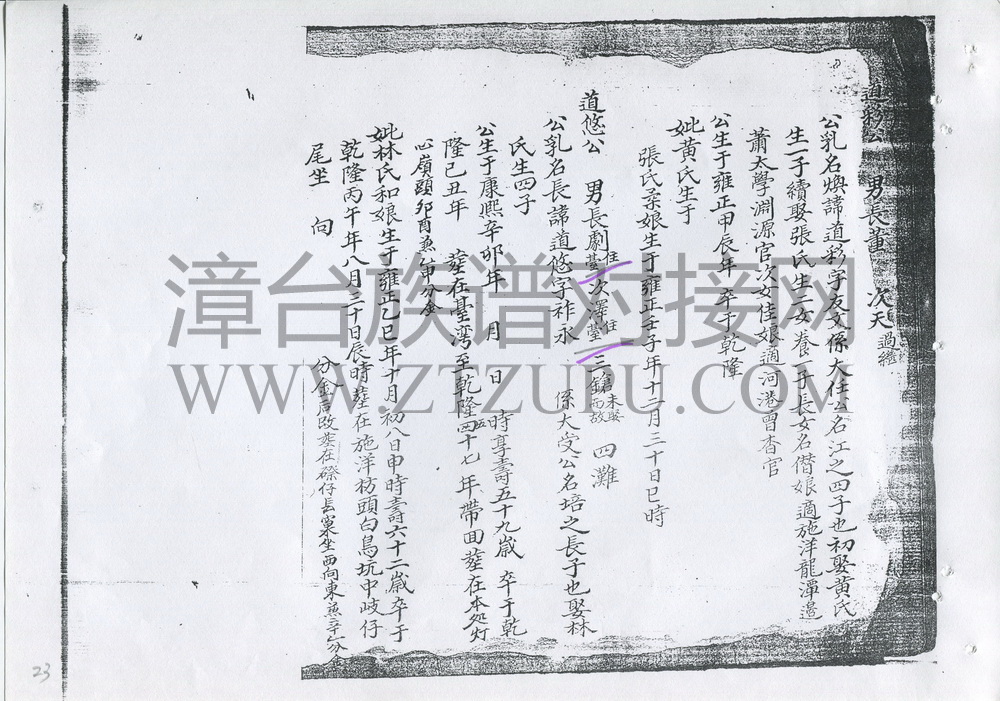 道彩公 男長董 次天過繼
公乳名煥諱道彩字友文係大任公名江之四子也初娶黃氏
生一子續娶張氏生二女養一子長女名僭娘適施洋龍潭邊
蕭太學淵源官次女佳娘適河港曾杳官
公生于雍正甲辰年 卒于乾隆
妣黃氏生于
張氏柔娘生于雍正壬子年十二月三十日巳時
道悠公 男長劇住臺 次澤住臺 三鎗未娶而故 四灘
公乳名長諱道悠字祚永 係大受公名培之長子也娶林
氏生四子
公生于康熙辛卯年 月 日 時享壽五十九歲 卒于乾
隆己丑年 葬在臺灣至乾隆四十七年帶回葬在本处灯
心嶺頭卯酉兼乙申分金
妣林氏和娘生于雍正乙巳年十月初八日申時壽六十二歲卒于
乾隆丙午年八月三十日辰時葬在施洋枋頭白鳥坑中岐仔
尾坐 向
分金后改葬在磜仔長窠坐西向東兼辛分金
漳台族谱对接网
WWW.ZTZUPU.COM
23